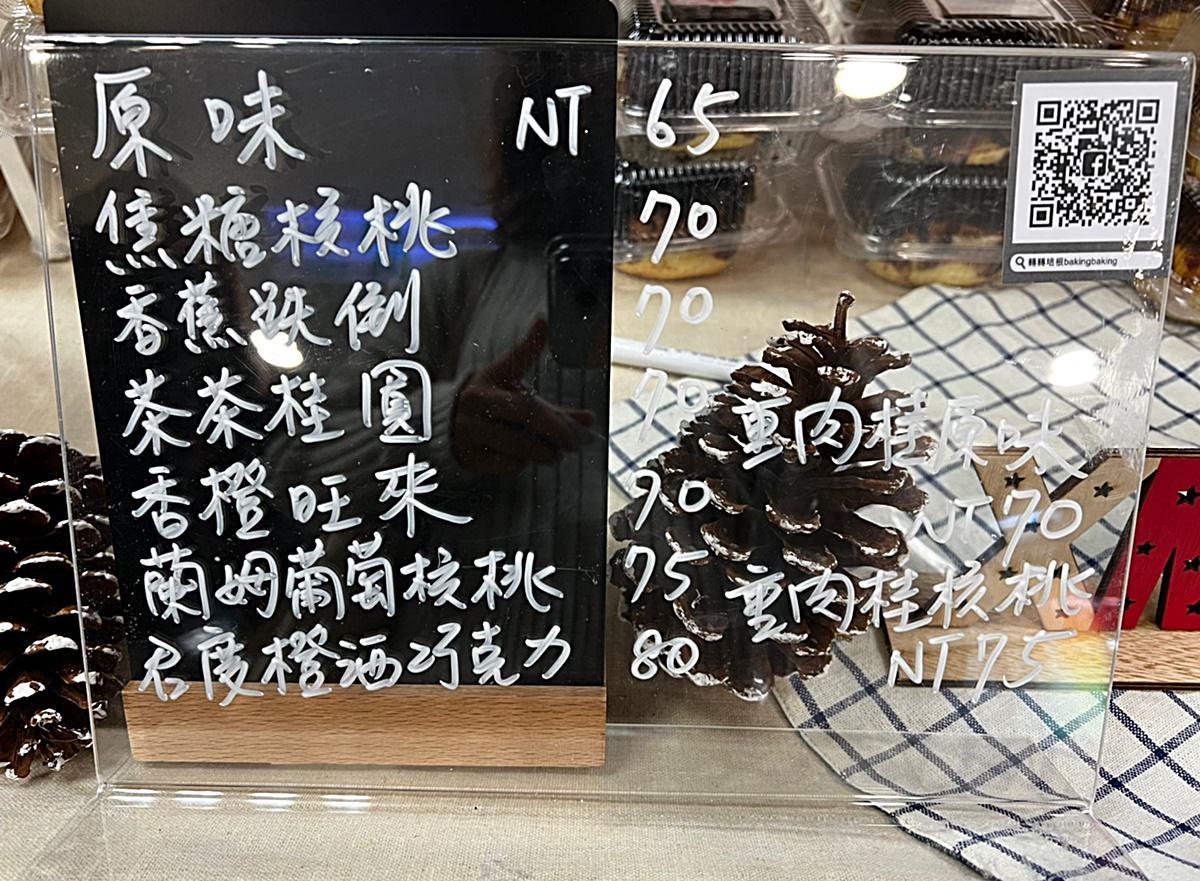 原味 NT 65
焦糖核桃 70
香蕉跌倒 70
茶茶桂圓 70
香橙旺來 90
蘭姆葡萄核桃 75
君度橙酒巧克力 80
重肉桂原味
NT 70
重肉桂核桃
NT 75
轉轉培根bakingbaking